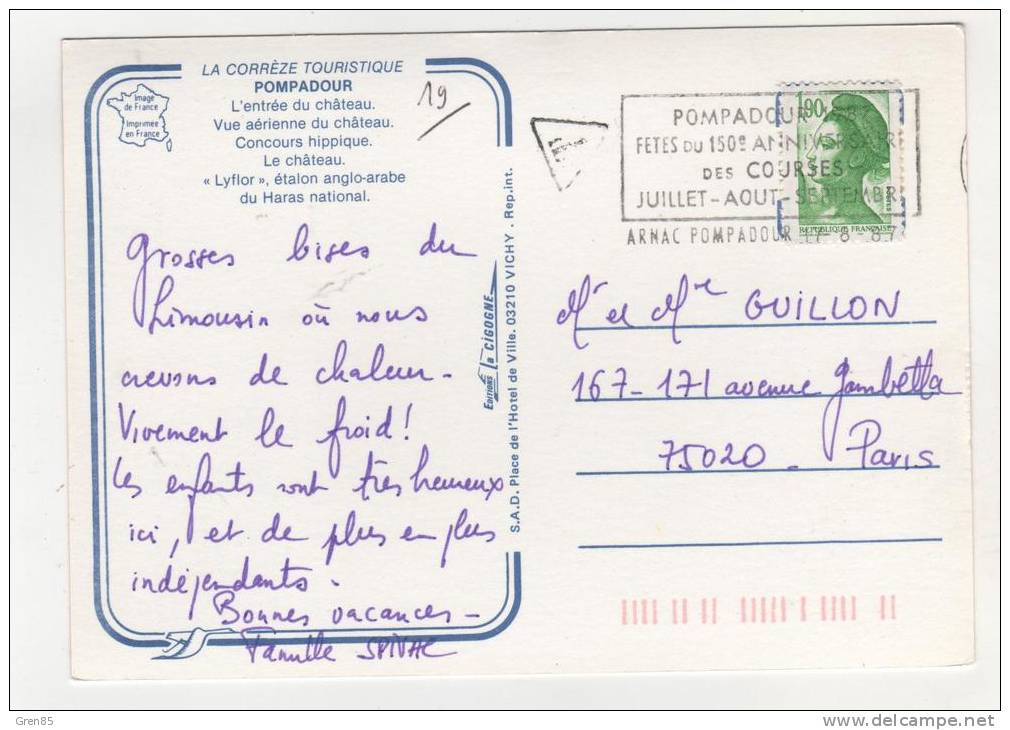 LA CORRÈZE TOURISTIQUE
POMPADOUR
L'entrée du château.
Vue aérienne du château.
Concours hippique.
Le château.
« Lyflor », étalon anglo-arabe
du Haras national.
Image
de France
Imprimée
en France
19
Grosses bises du
Limousin où nous
crevons de chaleur -
Vivement le froid !
Les enfants sont très heureux
ici, et de plus en plus
indépendants .
Bonnes vacances -
Famille SPIVAC
Editions La CIGOGNE
S.A.D. Place de l'Hotel de Ville. 03210 VICHY . Rep.int.
POMPADOUR
FETES DU 150e ANNIVERSAIRE
DES COURSES
JUILLET-AOUT-SEPTEMBR
ARNAC POMPADOUR 17-8-87
1,90
POSTES
REPUBLIQUE FRANÇAISE
Mr et Mme GUILLON
167-171 avenue Gambetta
75020 - Paris
Gren85
http://www.delcampe.net